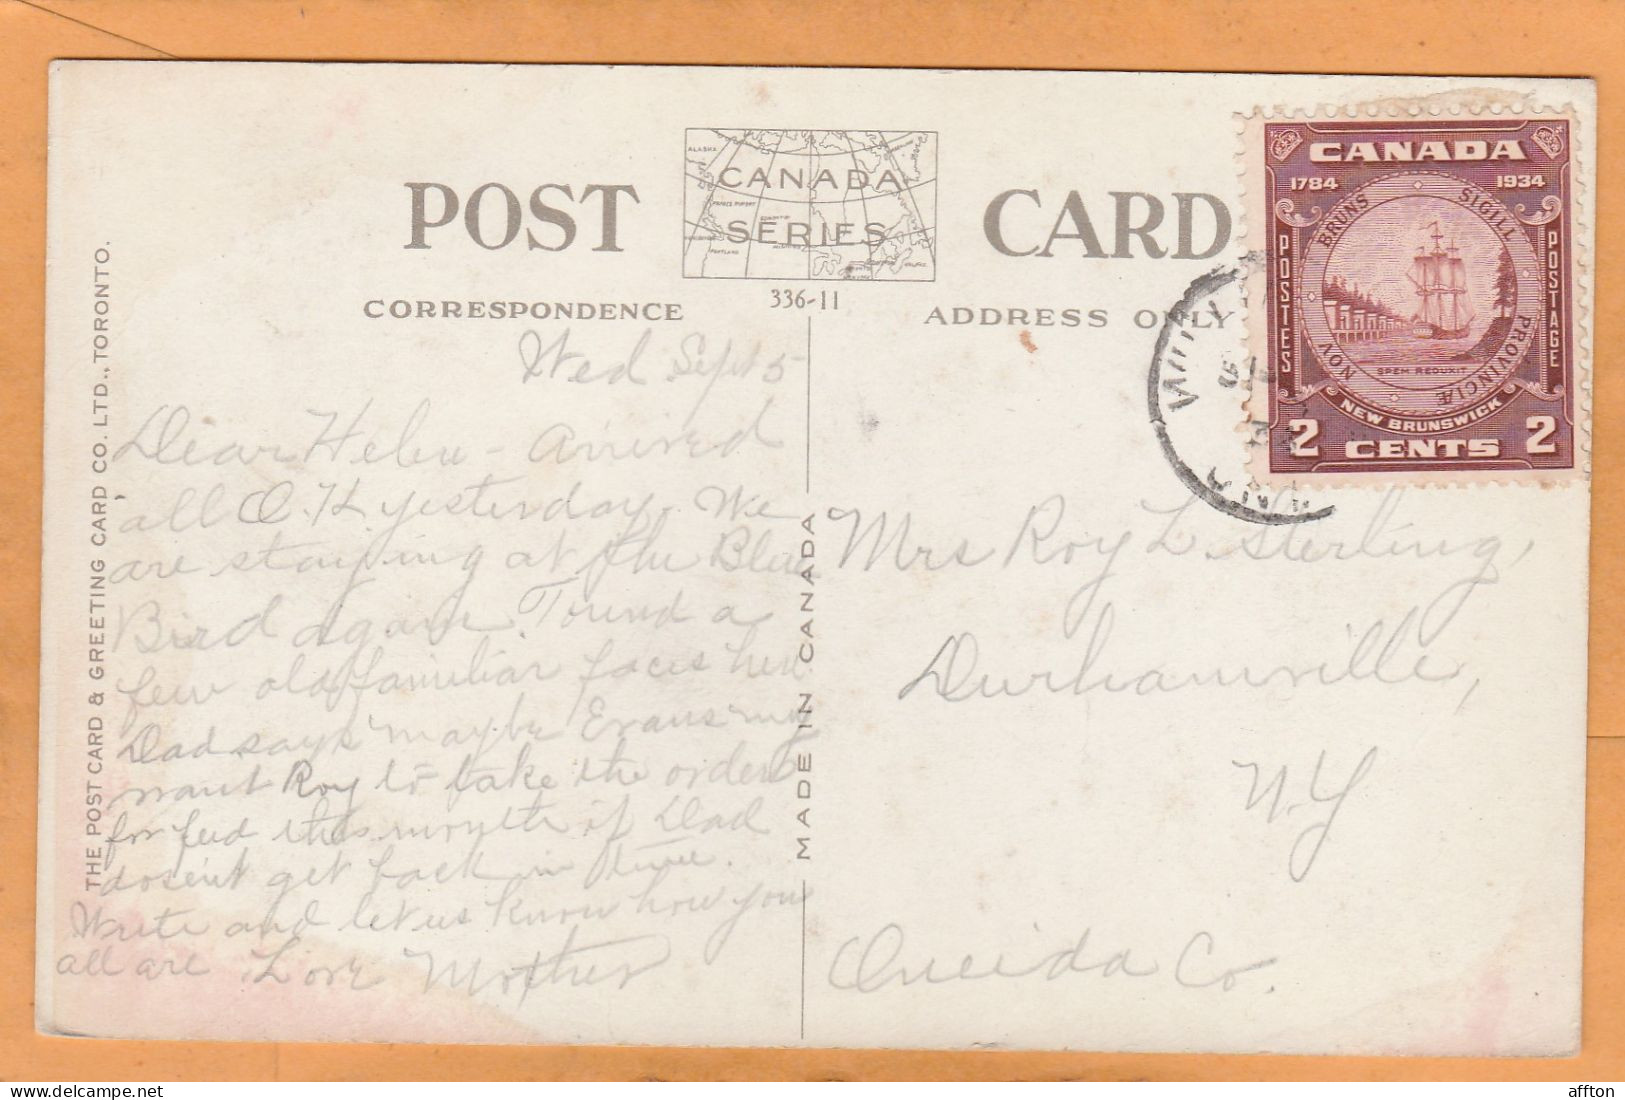 POST CARD
CANADA
SERIES
336-11
CORRESPONDENCE
ADDRESS ONLY
THE POST CARD & GREETING CARD CO. LTD., TORONTO.
MADE IN CANADA
CANADA
1784 1934
BRUNS SIGILL
NOV PROVINCIÆ
SPEM REDUXIT
POSTES
POSTAGE
NEW BRUNSWICK
2 CENTS 2
Wed Sept 5
Dear Helen - arrived
all O.K yesterday. We
are staying at the Blue
Bird again. Found a
few old familiar faces here
Dad says maybe Evans may
want Roy to take the orders
for feed this month if Dad
dosen't get back in time.
Write and let us know how you
all are Love Mother
Mrs Roy L. Sterling,
Durhamville,
N.Y
Oneida Co.
affton